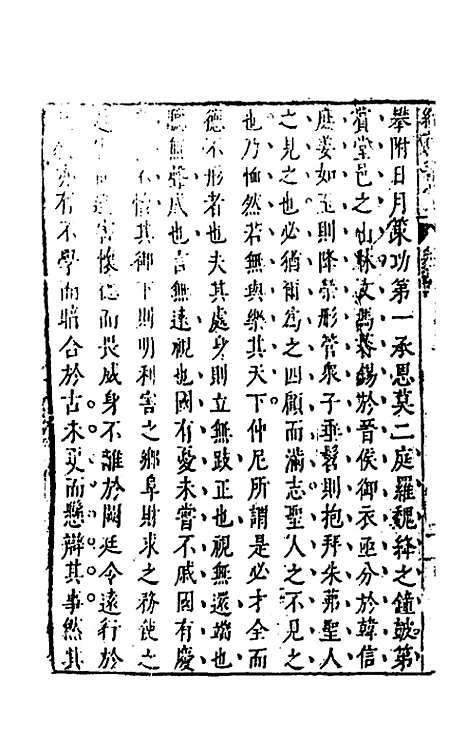 攀附日月策功第一承恩莫二庭羅魏絳之鐘鼓第
賞堂邑之山林文馬蕃錫於晉侯御衣亟分於韓信
庶姜如玉則降榮形管衆子垂髫則抱拜朱芾聖人
之見之也必猶爾爲之四顧而滿志聖人之不見之
也乃恤然若無與樂其天下仲尼所謂是必才全而
德不形者也夫其處身則立無跂正也視無還端也
聽無聳成也言無遠視也國有憂未嘗不戚國有慶
不怡其御下則明利害之鄉阜財求之務使之
害懷德而畏威身不離於闕廷令遠行於
有不學而暗合於古未更而懸辯其事然其